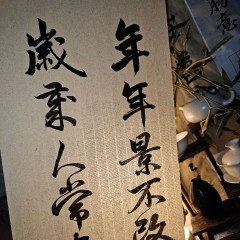 年年景不改
歲人常